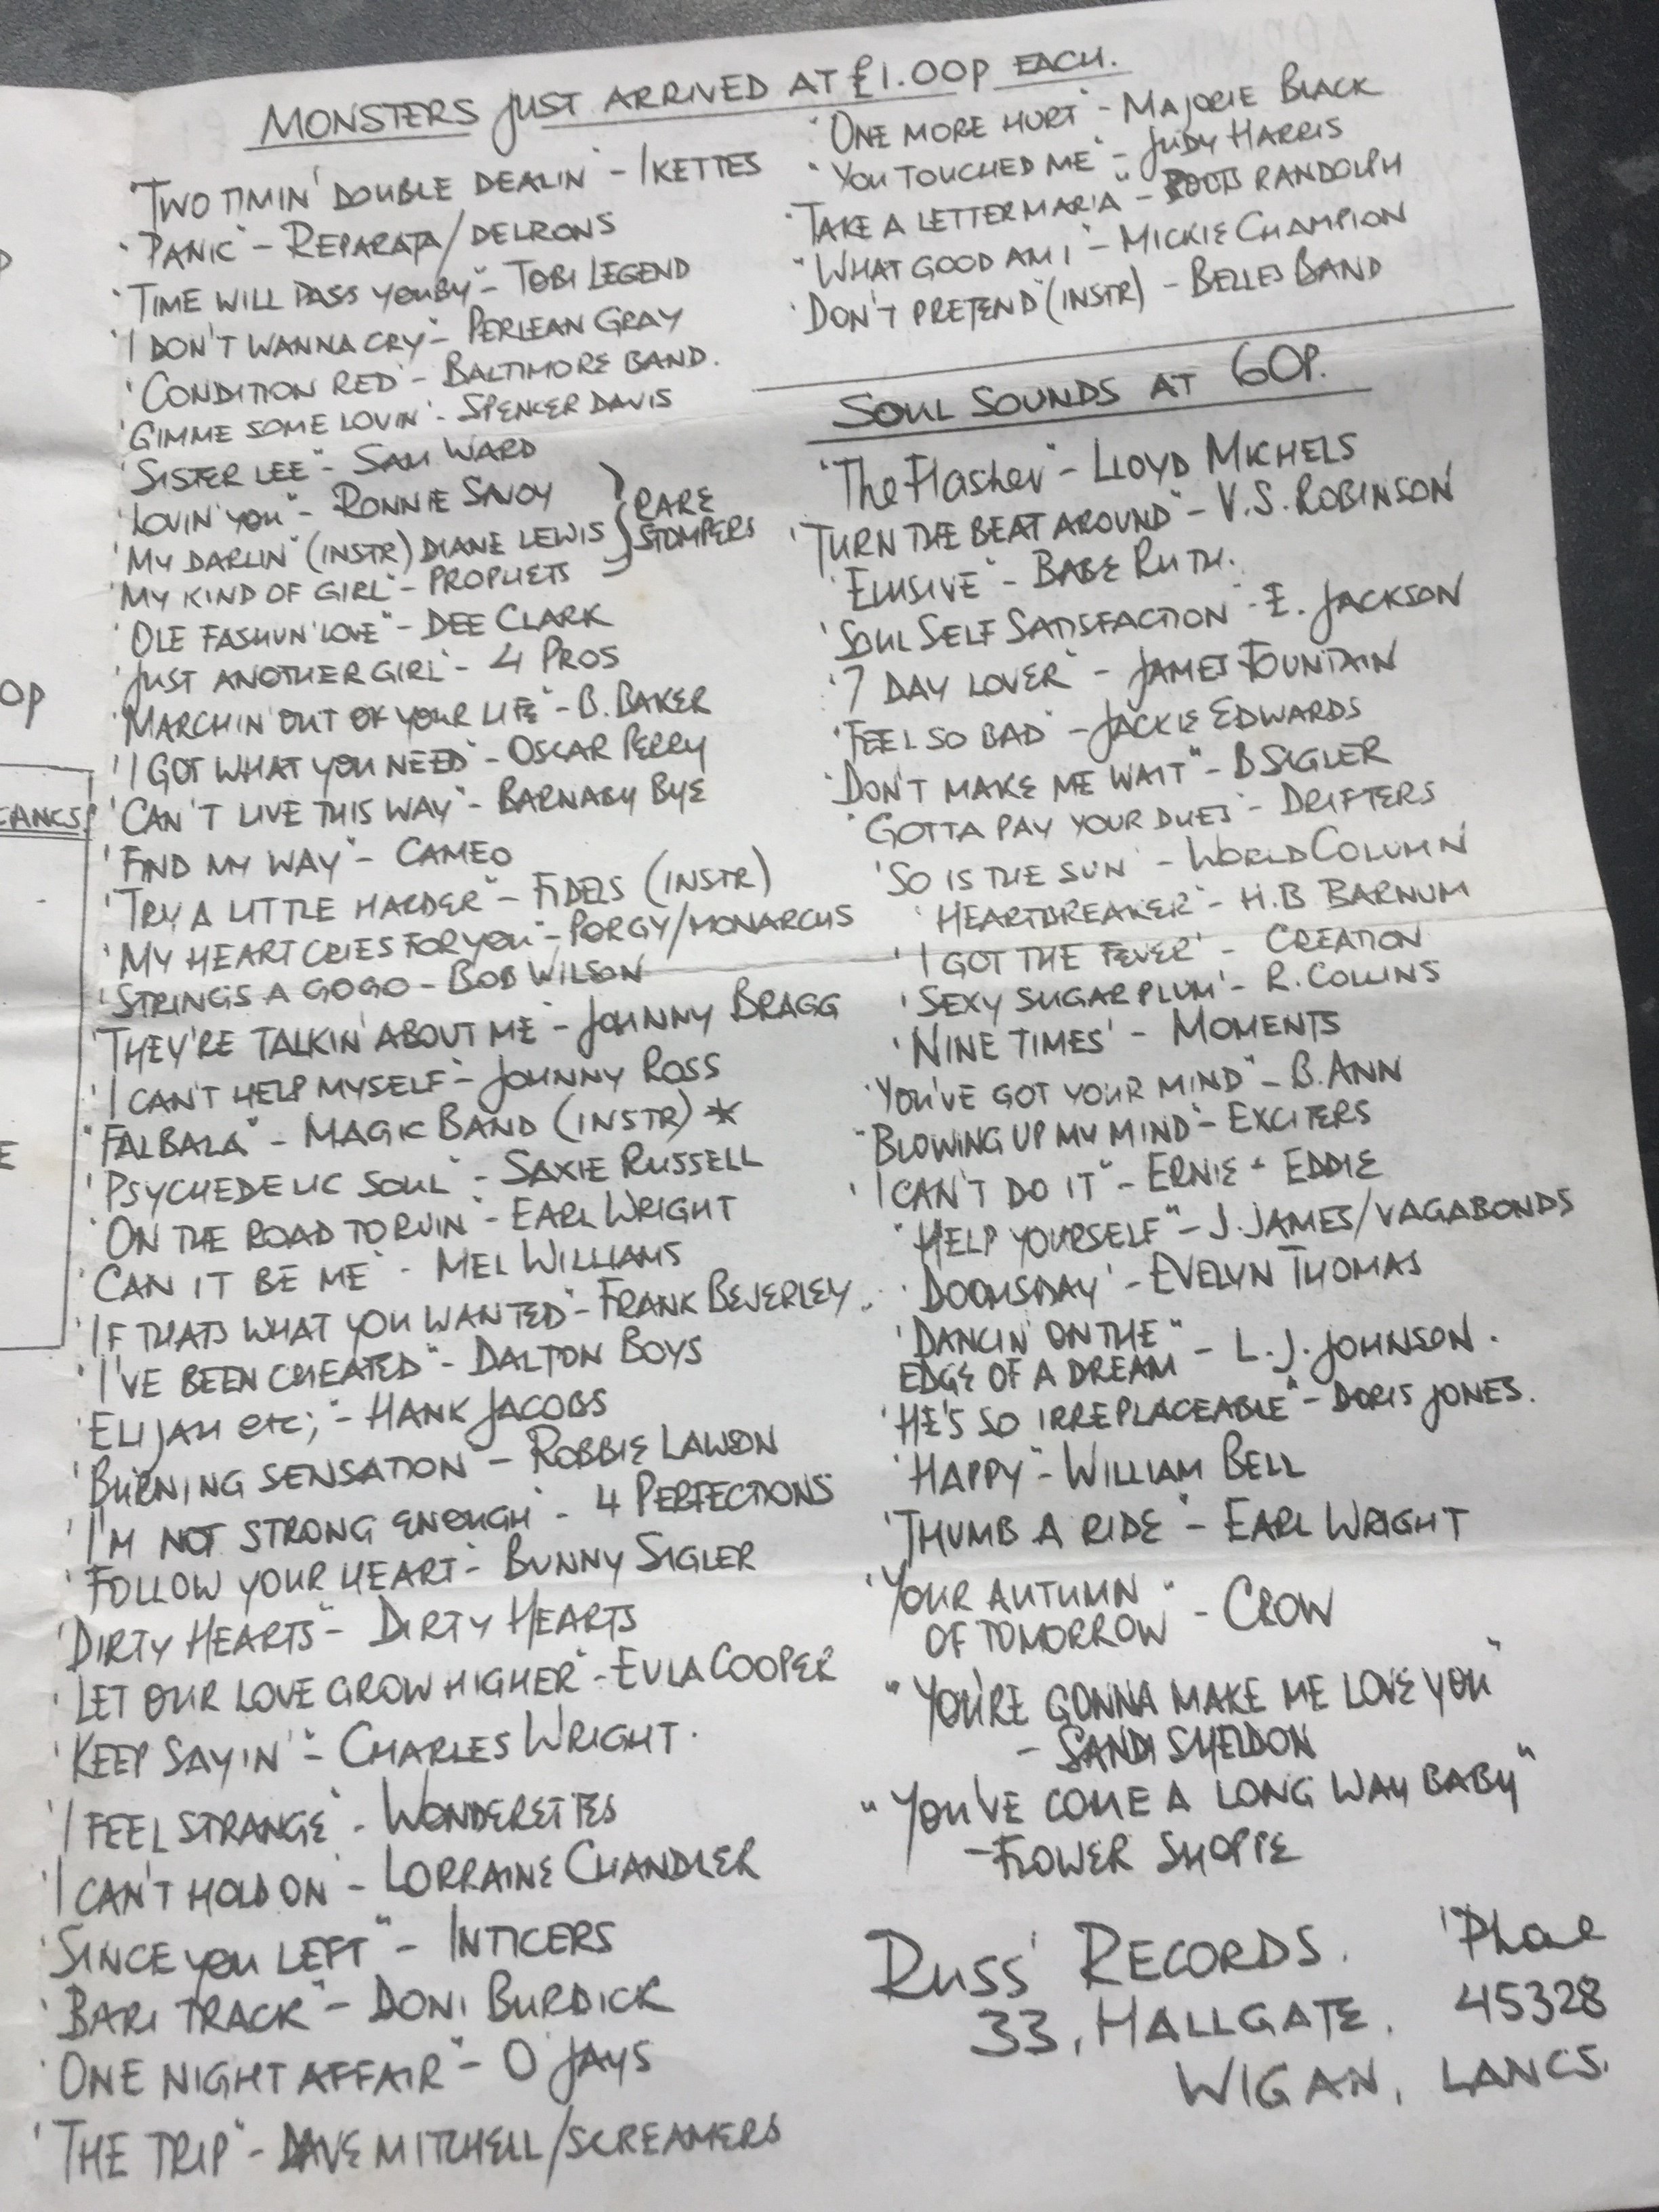 MONSTERS JUST ARRIVED AT £1.00P EACH.
'TWO TIMIN' DOUBLE DEALIN' - IKETTES
"PANIC" - REPARATA/DELRONS
'TIME WILL PASS YOU BY" - TOBI LEGEND
'I DON'T WANNA CRY' - PERLEAN GRAY
'CONDITION RED' - BALTIMORE BAND.
'GIMME SOME LOVIN' - SPENCER DAVIS
'SISTER LEE" - SAM WARD
'LOVIN' YOU" - RONNIE SAVOY
'MY DARLIN" (INSTR) DIANE LEWIS } RARE STOMPERS
'MY KIND OF GIRL" - PROPHETS
'OLE FASHUN' LOVE" - DEE CLARK
'JUST ANOTHER GIRL' - 4 PROS
'MARCHIN' OUT OF YOUR LIFE" - B. BAKER
'I GOT WHAT YOU NEED" - OSCAR PERRY
'CAN'T LIVE THIS WAY" - BARNABY BYE
'FIND MY WAY" - CAMEO
'TRY A LITTLE HARDER" - FIDELS (INSTR)
'MY HEART CRIES FOR YOU" - PORGY/MONARCHS
'STRINGS A GOGO - BOB WILSON
'THEY'RE TALKIN' ABOUT ME" - JOHNNY BRAGG
'I CAN'T HELP MYSELF" - JOHNNY ROSS
"FALBALA" - MAGIC BAND (INSTR) *
'PSYCHEDELIC SOUL" - SAXIE RUSSELL
'ON THE ROAD TO RUIN" - EARL WRIGHT
'CAN IT BE ME' - MEL WILLIAMS
'IF THATS WHAT YOU WANTED" - FRANK BEVERLEY
'I'VE BEEN CHEATED" - DALTON BOYS
'ELIJAH etc;" - HANK JACOBS
'BURNING SENSATION" - ROBBIE LAWSON
'I'M NOT STRONG ENOUGH' - 4 PERFECTIONS
'FOLLOW YOUR HEART' - BUNNY SIGLER
'DIRTY HEARTS" - DIRTY HEARTS
'LET OUR LOVE GROW HIGHER" - EULA COOPER
'KEEP SAYIN'" - CHARLES WRIGHT.
'I FEEL STRANGE' - WONDERETTES
'I CAN'T HOLD ON' - LORRAINE CHANDLER
'SINCE YOU LEFT" - INTICERS
'BARI TRACK" - DONI BURDICK
'ONE NIGHT AFFAIR" - O'JAYS
'THE TRIP" - DAVE MITCHELL/SCREAMERS
"ONE MORE HURT" - MAJORIE BLACK
"YOU TOUCHED ME" - JUDY HARRIS
'TAKE A LETTER MARIA" - BOOTS RANDOLPH
"WHAT GOOD AM I" - MICKIE CHAMPION
'DON'T PRETEND" (INSTR) - BELLES BAND
SOUL SOUNDS AT 60P.
"The Flasher" - LLOYD MICHELS
'TURN THE BEAT AROUND" - V.S. ROBINSON
'ELUSIVE" - BABE RUTH.
'SOUL SELF SATISFACTION" - E. JACKSON
'7 DAY LOVER" - JAMES FOUNTAIN
'FEEL SO BAD" - JACKIE EDWARDS
'DON'T MAKE ME WAIT" - B SIGLER
"GOTTA PAY YOUR DUES" - DRIFTERS
'SO IS THE SUN' - WORLD COLUMN
'HEARTBREAKER' - H.B BARNUM
'I GOT THE FEVER' - CREATION
'SEXY SUGAR PLUM' - R. COLLINS
'NINE TIMES' - MOMENTS
'YOU'VE GOT YOUR MIND" - B. ANN
"BLOWING UP MY MIND" - EXCITERS
'I CAN'T DO IT" - ERNIE + EDDIE
"HELP YOURSELF" - J. JAMES/VAGABONDS
'DOOMSDAY' - EVELYN THOMAS
'DANCIN' ON THE
EDGE OF A DREAM" - L.J. JOHNSON.
'HE'S SO IRREPLACEABLE" - DORIS JONES.
'HAPPY" - WILLIAM BELL
'THUMB A RIDE" - EARL WRIGHT
'YOUR AUTUMN
OF TOMORROW" - CROW
"YOU'RE GONNA MAKE ME LOVE YOU"
- SANDI SHELDON
"YOU'VE COME A LONG WAY BABY"
- FLOWER SHOPPE
RUSS' RECORDS. 'Phone
33, HALLGATE, 45328
WIGAN, LANCS.